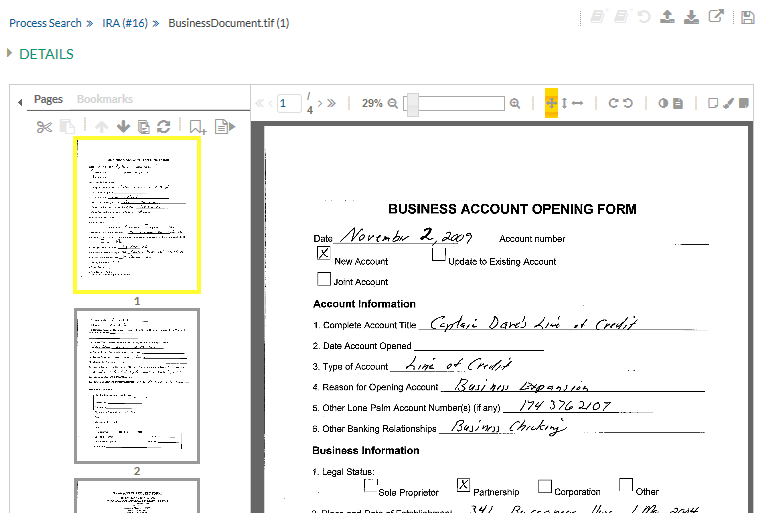 Process Search » IRA (#16) » BusinessDocument.tif (1)
DETAILS
Pages Bookmarks
1 / 4
29%
1
2
BUSINESS ACCOUNT OPENING FORM
Date November 2, 2009 Account number
X New Account Update to Existing Account
Joint Account
Account Information
1. Complete Account Title Captain Dave's Line of Credit
2. Date Account Opened
3. Type of Account Line of Credit
4. Reason for Opening Account Business Expansion
5. Other Lone Palm Account Number(s) (if any) 174 376 2107
6. Other Banking Relationships Business Checking
Business Information
1. Legal Status:
Sole Proprietor X Partnership Corporation Other
2. Place and Date of Establishment 341